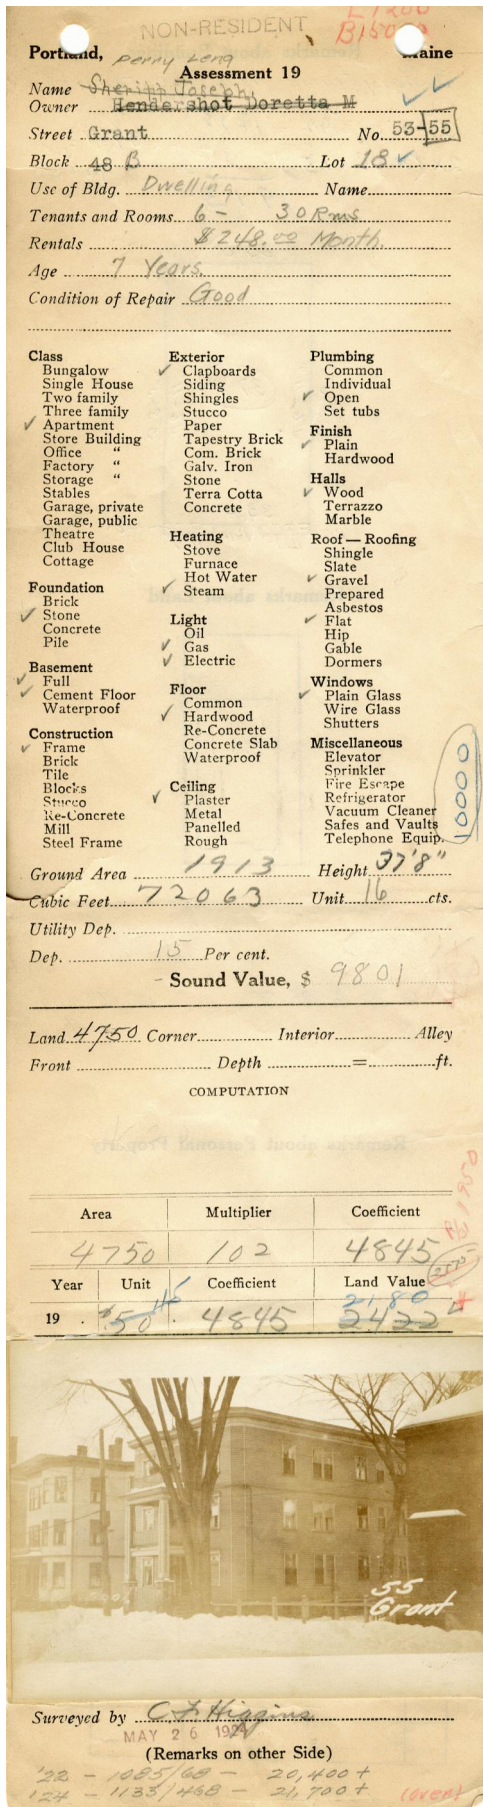 NON-RESIDENT
Portland, Maine
Perry Lena
Assessment 19
Name Sheriff Joseph
Owner Hendershot Doretta M
Street Grant No. 53-55
Block 48 B Lot 18
Use of Bldg. Dwelling Name
Tenants and Rooms 6 - 30 Rms
Rentals $248.00 Month.
Age 7 Years.
Condition of Repair Good
Class
Bungalow
Single House
Two family
Three family
✓ Apartment
Store Building
Office "
Factory "
Storage "
Stables
Garage, private
Garage, public
Theatre
Club House
Cottage
Foundation
Brick
✓ Stone
Concrete
Pile
Basement
✓ Full
✓ Cement Floor
Waterproof
Construction
✓ Frame
Brick
Tile
Blocks
Stucco
Re-Concrete
Mill
Steel Frame
Exterior
✓ Clapboards
Siding
Shingles
Stucco
Paper
Tapestry Brick
Com. Brick
Galv. Iron
Stone
Terra Cotta
Concrete
Heating
Stove
Furnace
Hot Water
✓ Steam
Light
Oil
✓ Gas
✓ Electric
Floor
Common
✓ Hardwood
Re-Concrete
Concrete Slab
Waterproof
Ceiling
✓ Plaster
Metal
Panelled
Rough
Plumbing
Common
Individual
✓ Open
Set tubs
Finish
✓ Plain
Hardwood
Halls
✓ Wood
Terrazzo
Marble
Roof — Roofing
Shingle
Slate
✓ Gravel
Prepared
Asbestos
✓ Flat
Hip
Gable
Dormers
Windows
✓ Plain Glass
Wire Glass
Shutters
Miscellaneous
Elevator
Sprinkler
Fire Escape
Refrigerator
Vacuum Cleaner
Safes and Vaults
Telephone Equip.
10000
Ground Area 1913 Height 37'8"
Cubic Feet 72063 Unit 16 cts.
Utility Dep.
Dep. 15 Per cent.
Sound Value, $ 9801
Land 4750 Corner Interior Alley
Front Depth = ft.
COMPUTATION
Area Multiplier Coefficient
4750 102 4845
2575
Year Unit Coefficient Land Value
45 2180
19 . $50 . 4845 2422
55
Grant
Surveyed by C F Higgins
MAY 26 1924
(Remarks on other Side)
'22 - 1085/68 - 20,400 +
'24 - 1133/468 - 21,700 + (over)